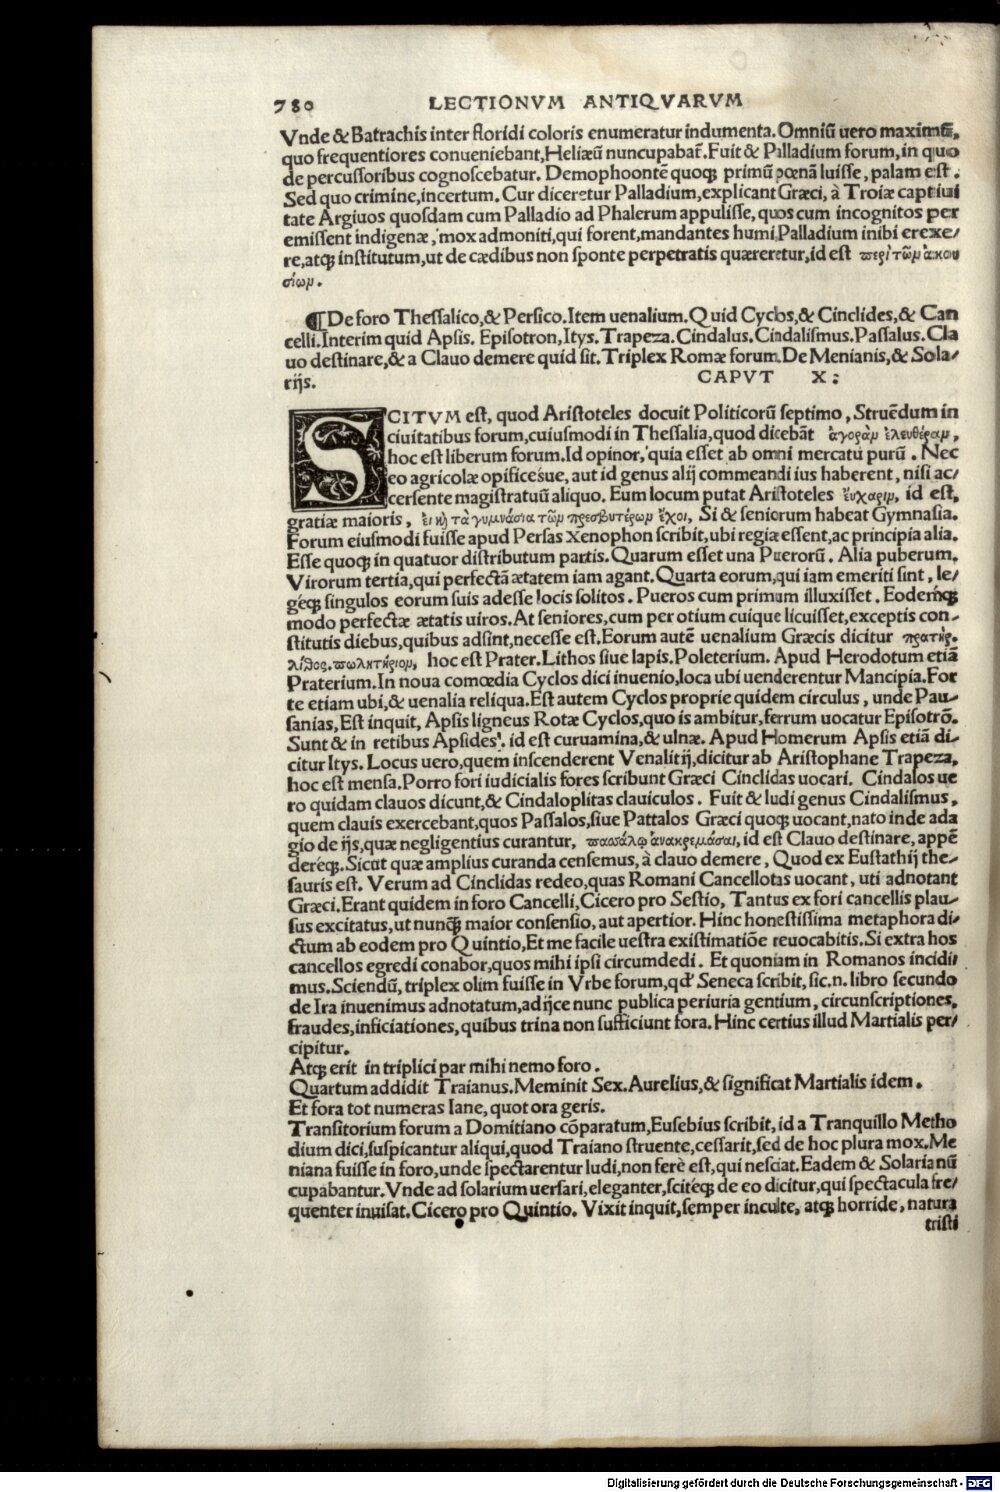 780 LECTIONVM ANTIQVARVM
Vnde & Batrachis inter floridi coloris enumeratur indumenta. Omniũ uero maximũ,
quo frequentiores conueniebant, Heliæũ nuncupabat̃. Fuit & Palladium forum, in quo
de percussoribus cognoscebatur. Demophoontẽ quoqꝫ primũ pœnã luisse, palam est.
Sed quo crimine, incertum. Cur diceretur Palladium, explicant Græci, à Troiæ captiui
tate Argiuos quosdam cum Palladio ad Phalerum appulisse, quos cum incognitos per
emissent indigenæ, mox admoniti, qui forent, mandantes humi, Palladium inibi erexe/
re, atqꝫ institutum, ut de cædibus non sponte perpetratis quæreretur, id est περὶ τῶμ ἀκου
σίωμ.
¶ De foro Thessalico, & Persico. Item uenalium. Quid Cyclos, & Cinclides, & Can
celli. Interim quid Apsis. Episotron, Itys. Trapeza. Cindalus. Cindalismus. Passalus. Cla
uo destinare, & a Clauo demere quid sit. Triplex Romæ forum. De Menianis, & Sola/
rijs. CAPVT X:
SCITVM est, quod Aristoteles docuit Politicorũ septimo, Struẽdum in
ciuitatibus forum, cuiusmodi in Thessalia, quod dicebãt ἀγορὰμ ἐλευθέραμ,
hoc est liberum forum. Id opinor, quia esset ab omni mercatu purũ. Nec
eo agricolæ opificesue, aut id genus alij commeandi ius haberent, nisi ac/
cersente magistratuũ aliquo. Eum locum putat Aristoteles ἔυχαριμ, id est,
gratiæ maioris, ἐι κỳ τὰ γυμνάσια τῶμ πρεσβυτέρωμ ἔχοι, Si & seniorum habeat Gymnasia.
Forum eiusmodi fuisse apud Persas Xenophon scribit, ubi regiæ essent, ac principia alia.
Esse quoqꝫ in quatuor distributum partis. Quarum esset una Puerorũ. Alia puberum.
Virorum tertia, qui perfectã ætatem iam agant. Quarta eorum, qui iam emeriti sint, le/
géqꝫ singulos eorum suis adesse locis solitos. Pueros cum primum illuxisset. Eodemqꝫ
modo perfectæ ætatis uiros. At seniores, cum per otium cuique licuisset, exceptis con-
stitutis diebus, quibus adsint, necesse est. Eorum autẽ uenalium Græcis dicitur πρατὴρ.
λίθος. πωλητήριομ, hoc est Prater. Lithos siue lapis. Poleterium. Apud Herodotum etiã
Praterium. In noua comœdia Cyclos dici inuenio, loca ubi uenderentur Mancipia. For
te etiam ubi, & uenalia reliqua. Est autem Cyclos proprie quidem circulus, unde Pau-
sanias, Est inquit, Apsis ligneus Rotæ Cyclos, quo is ambitur, ferrum uocatur Episotrõ.
Sunt & in retibus Apsides. id est curuamina, & ulnæ. Apud Homerum Apsis etiã di-
citur Itys. Locus uero, quem inscenderent Venalitij, dicitur ab Aristophane Trapeza,
hoc est mensa. Porro fori iudicialis fores scribunt Græci Cinclidas uocari. Cindalos ue
ro quidam clauos dicunt, & Cindaloplitas clauiculos. Fuit & ludi genus Cindalismus,
quem clauis exercebant, quos Passalos, siue Pattalos Græci quoqꝫ uocant, nato inde ada
gio de ijs, quæ negligentius curantur, πασσάλῳ ἀνακρεμάσαι, id est Clauo destinare, appẽ
deréqꝫ. Sicut quæ amplius curanda censemus, à clauo demere, Quod ex Eustathij the-
sauris est. Verum ad Cinclidas redeo, quas Romani Cancellotas uocant, uti adnotant
Græci. Erant quidem in foro Cancelli, Cicero pro Sestio, Tantus ex fori cancellis plau-
sus excitatus, ut nunqꝫ̃ maior consensio, aut apertior. Hinc honestissima metaphora di-
ctum ab eodem pro Quintio, Et me facile uestra existimatiõe reuocabitis. Si extra hos
cancellos egredi conabor, quos mihi ipsi circumdedi. Et quoniam in Romanos incidi
mus. Sciendũ, triplex olim fuisse in Vrbe forum, qd' Seneca scribit, sic.n. libro secundo
de Ira inuenimus adnotatum, adijce nunc publica periuria gentium, circunscriptiones,
fraudes, inficiationes, quibus trina non sufficiunt fora. Hinc certius illud Martialis per/
cipitur.
Atqꝫ erit in triplici par mihi nemo foro.
Quartum addidit Traianus. Meminit Sex. Aurelius, & significat Martialis idem.
Et fora tot numeras Iane, quot ora geris.
Transitorium forum a Domitiano cõparatum, Eusebius scribit, id a Tranquillo Metho
dium dici, suspicantur aliqui, quod Traiano struente, cessarit, sed de hoc plura mox. Me
niana fuisse in foro, unde spectarentur ludi, non ferè est, qui nesciat. Eadem & Solaria nũ
cupabantur. Vnde ad solarium uersari, eleganter, scitéqꝫ de eo dicitur, qui spectacula fre/
quenter inuisat. Cicero pro Quintio. Vixit inquit, semper inculte, atqꝫ horride, natura
tristi
Digitalisierung gefördert durch die Deutsche Forschungsgemeinschaft - DFG